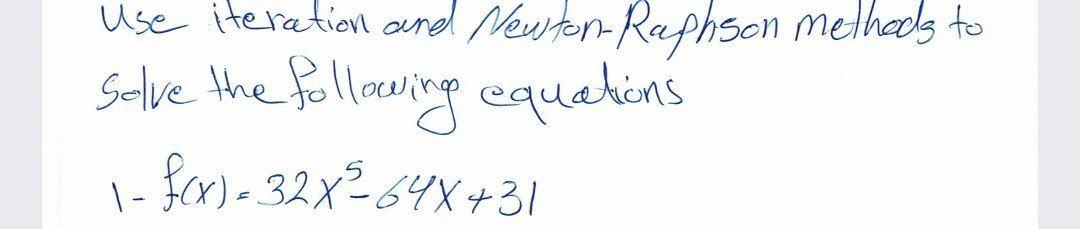 Use iteration and Newton-Raphson methods to
Solve the following equations
1- f(x) = 32x⁵-64x+31